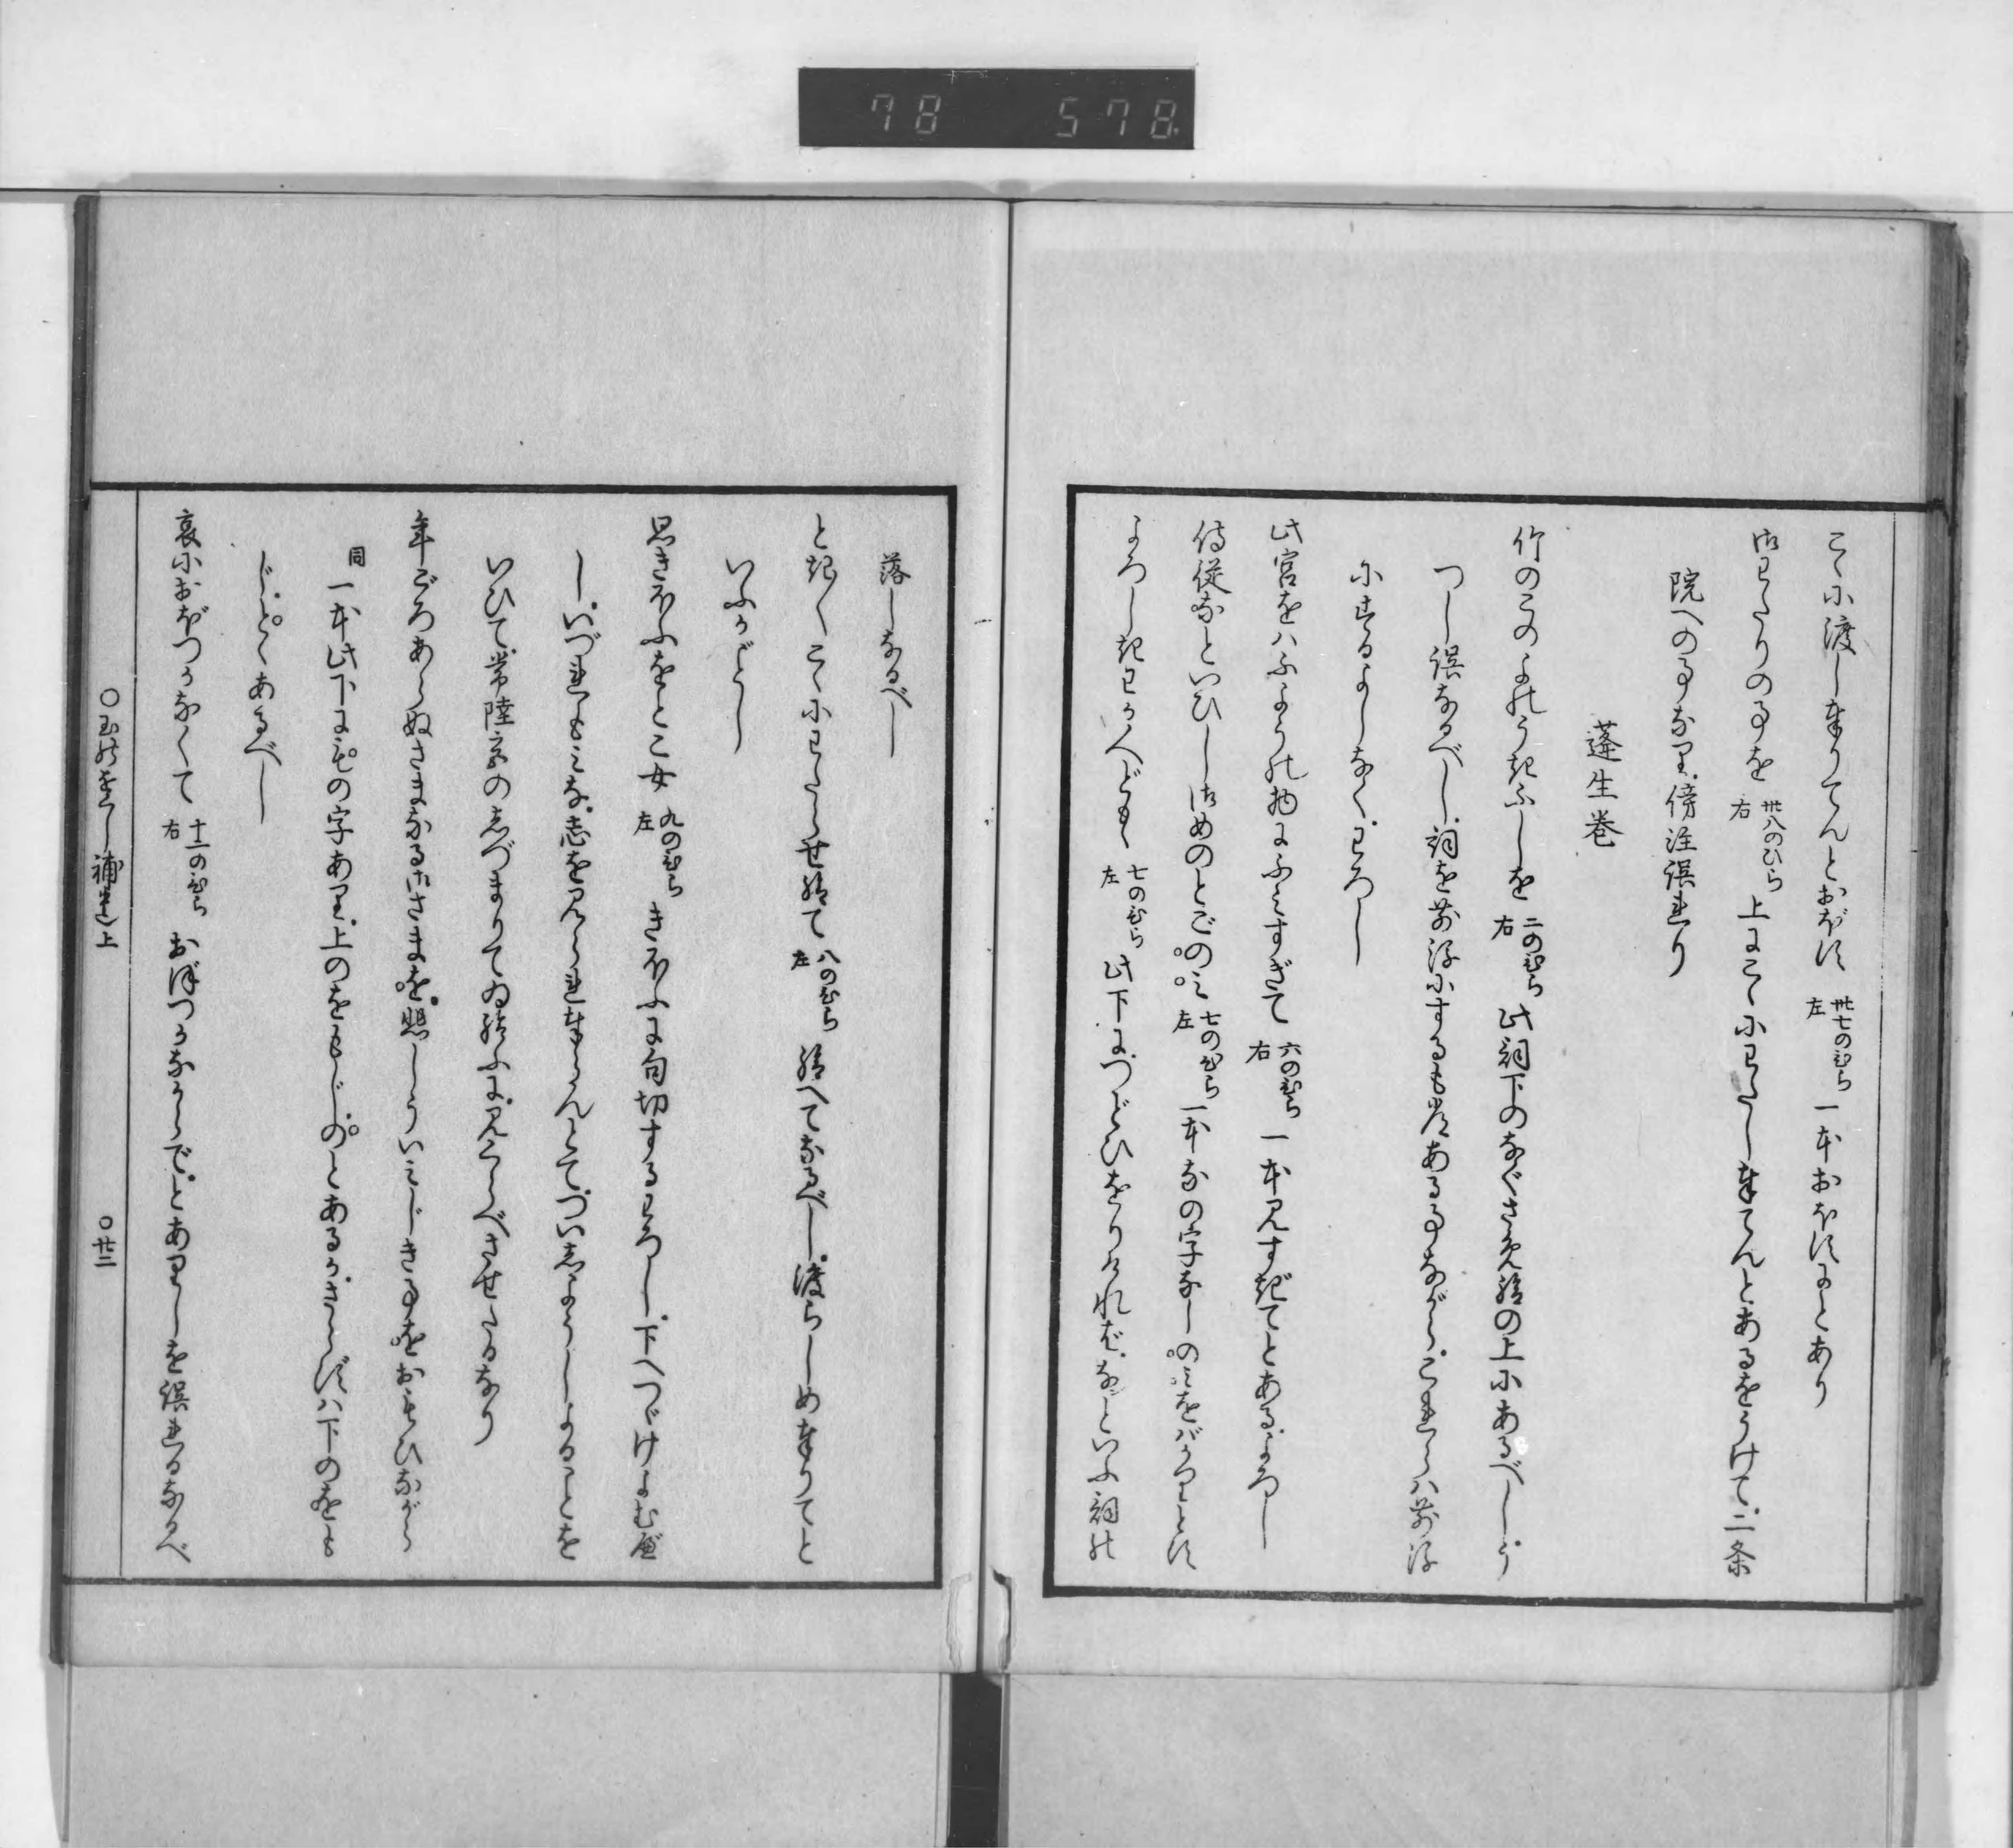 78 578
こゝに渡し奉りてんとおぼす 卅七のひら左 一本おほすにとあり
御わたりの事を 卅八のひら右 上にこゝにわたし奉てんとあるをうけて、二条
院への事なり、傍注誤れり
蓬生巻
竹のこのよのうきふしを 二のひら右 此詞下のなぐさめ給の上にあるべし、う
つし誤なるべし、詞を前後にするも常ある事ながら、これらハ前後
にせるよしなく、わろし
此宮をハふようの物にふみすぎて 六のひら右 一本見すぎてとある、よろし
侍従などいひし御めのとごのみ 七のひら左 一本なの字なしのみをバかりとす
よろしきわかへども 七のひら左 此下に、つどひをりけれバ、などいふ詞の
落しなるべし
ときゞこゝにわたらせ給て 八のひら左 給へてなるべし、渡らしめ奉りてと
いふがごとし
思きほふをとこ女 九のひら左 きほふに句切するわろし、下へつゞけよむべ
し、いづれもみな、志を見られ奉らんとて、ついしようしよることを
いひて、常陸宮の志づまりてゐ給ふに、見くらべさせたるなり
年ごろあらぬさまなる御さまを、悲しういみじき事をおもひながら
同 一本此下にもの字あり、上のをもじ、のとあるが、きこえず、ハ下のをも
じ、とゝあるべし
哀におぼつかなくて 十一のひら右 おぼつかなからで、とありしを誤れるなるべ
○玉のをぐし補遺上 ○廿二